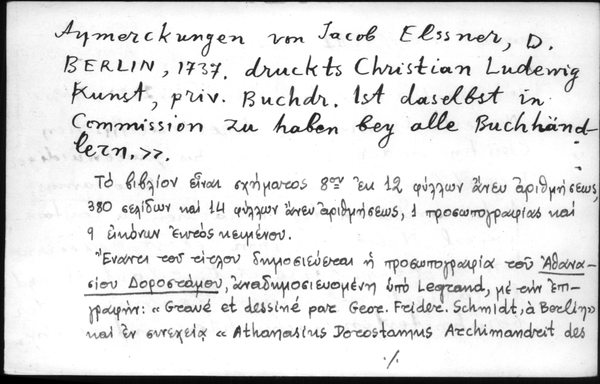 Aymerckungen von Jacob Elssner, D.
BERLIN, 1737, druckts Christian Ludewig
Kunst, priv. Buchdr. Ist daselbst in
Commission zu haben bey alle Buchhänd-
lern.>>.
Τὸ βιβλίον εἶναι σχήματος 8ου ἐκ 12 φύλλων ἄνευ ἀριθμήσεως,
380 σελίδων καὶ 14 φύλλων ἄνευ ἀριθμήσεως, 1 προσωπογραφίας καὶ
9 εἰκόνων ἐντὸς κειμένου.
Ἔναντι τοῦ τίτλου δημοσιεύεται ἡ προσωπογραφία τοῦ Ἀθανα-
σίου Δοροστάμου, ἀναδημοσιευομένη ὑπὸ Legrand, μὲ τὴν ἐπι-
γραφὴν: « Gravé et dessiné par Geor. Frider. Schmidt, à Berlin»
καὶ ἐν συνεχείᾳ « Athanasius Dorostamus Archimandrit des
./.